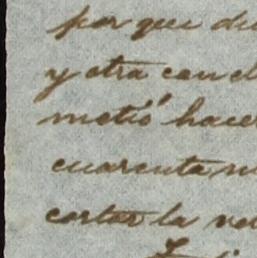 por que di
y otra con el
metió hacer
cuarenta m
cortar la ve